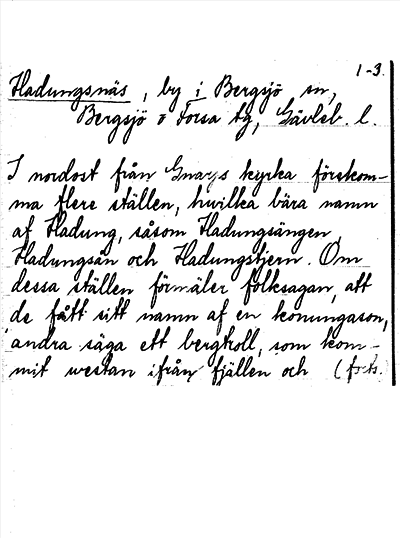 1-3.
Hadungsnäs, by i Bergsjö sn,
Bergsjö o Forsa tg, Gävleb. l.
I nordost från Gnarps kyrka förekom-
ma flere ställen, hwilka bära namn
af Hadung, såsom Hadungsängen,
Hadungsån och Hadungstjern. Om
dessa ställen förmäler folksagan, att
de fått sitt namn af en konungason,
andra säga ett bergtroll, som kom-
mit westan ifrån fjällen och (forts.